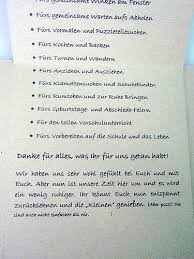 Fürs gemeinsame Winken am Fenster
• Fürs gemeinsame Warten aufs Abholen
• Fürs Vormalen und Puzzlereisesuchen
• Fürs Kochen und Backen
• Fürs Turnen und Wandern
• Fürs Anziehen und Ausziehen
• Fürs Klamottensuchen und Schuhebinden
• Fürs Rumtoben und zur Ruhe bringen
• Fürs Geburtstags- und Abschieds-Feiern
• Für den tollen Vorschulunterricht
• Fürs Vorbereiten auf die Schule und das Leben
Danke für alles, was Ihr für uns getan habt!
Wir haben uns sehr wohl gefühlt bei Euch und mit
Euch. Aber nun ist unsere Zeit hier um und es wird
ein wenig ruhiger. Ihr könnt Euch nun entspannt
zurücklehnen und die „Kleinen“ genießen.
sind auch nicht einfacher als wir.